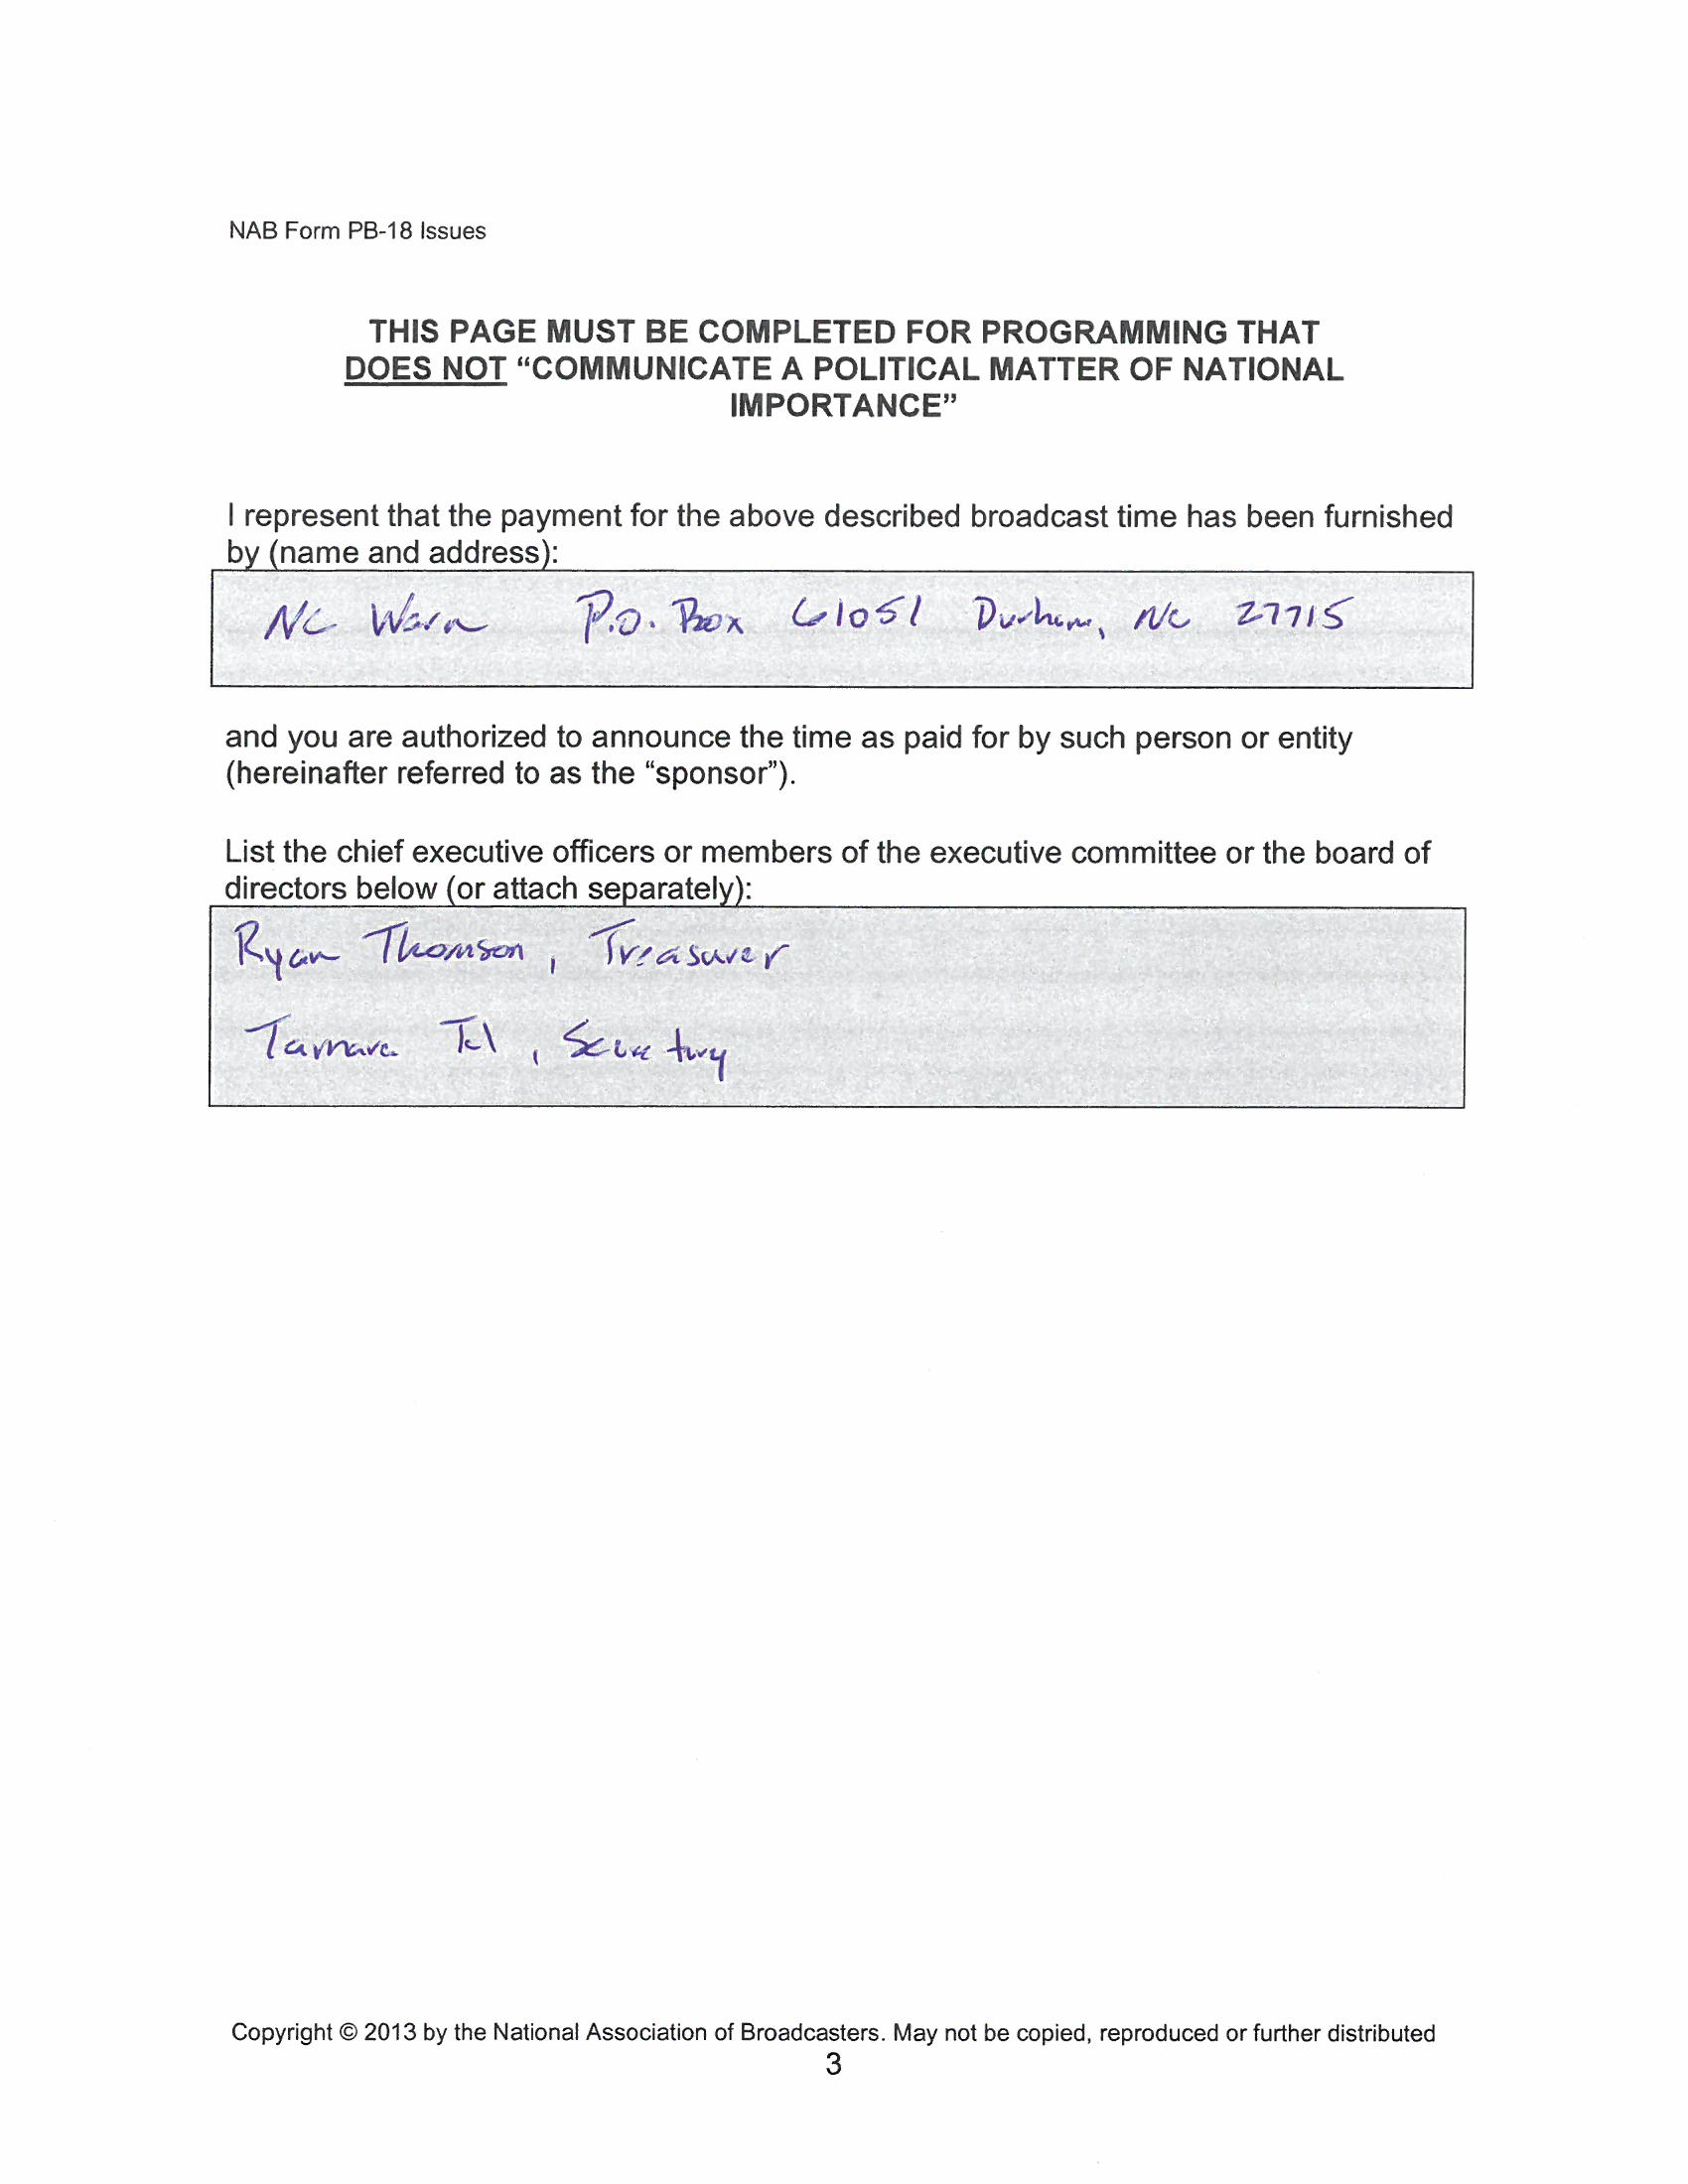 NAB Form PB-18 Issues
THIS PAGE MUST BE COMPLETED FOR PROGRAMMING THAT
DOES NOT “COMMUNICATE A POLITICAL MATTER OF NATIONAL
IMPORTANCE”
I represent that the payment for the above described broadcast time has been furnished
by (name and address):
NC Warn P.O. Box 61051 Durham, NC 27715
and you are authorized to announce the time as paid for by such person or entity
(hereinafter referred to as the “sponsor”).
List the chief executive officers or members of the executive committee or the board of
directors below (or attach separately):
Ryan Thomson, Treasurer
Tamara , Secretary
Copyright © 2013 by the National Association of Broadcasters. May not be copied, reproduced or further distributed
3